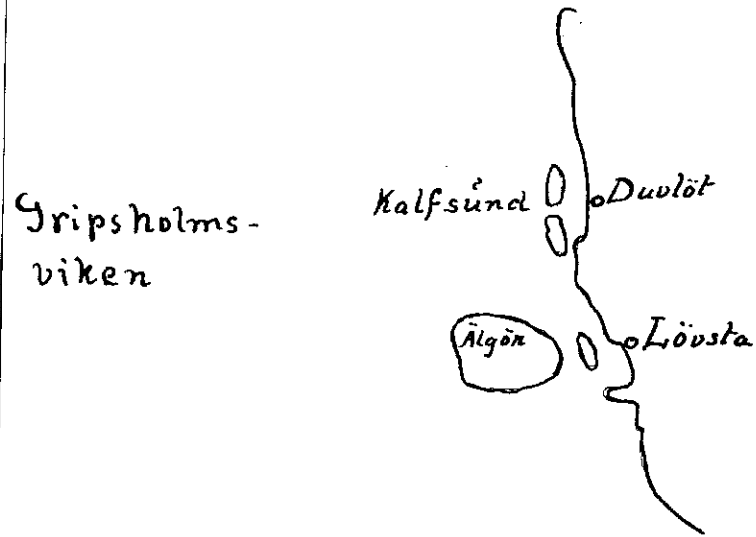 Gripsholms-
viken
Kalfsund
Duvlöt
Älgön
Lövsta